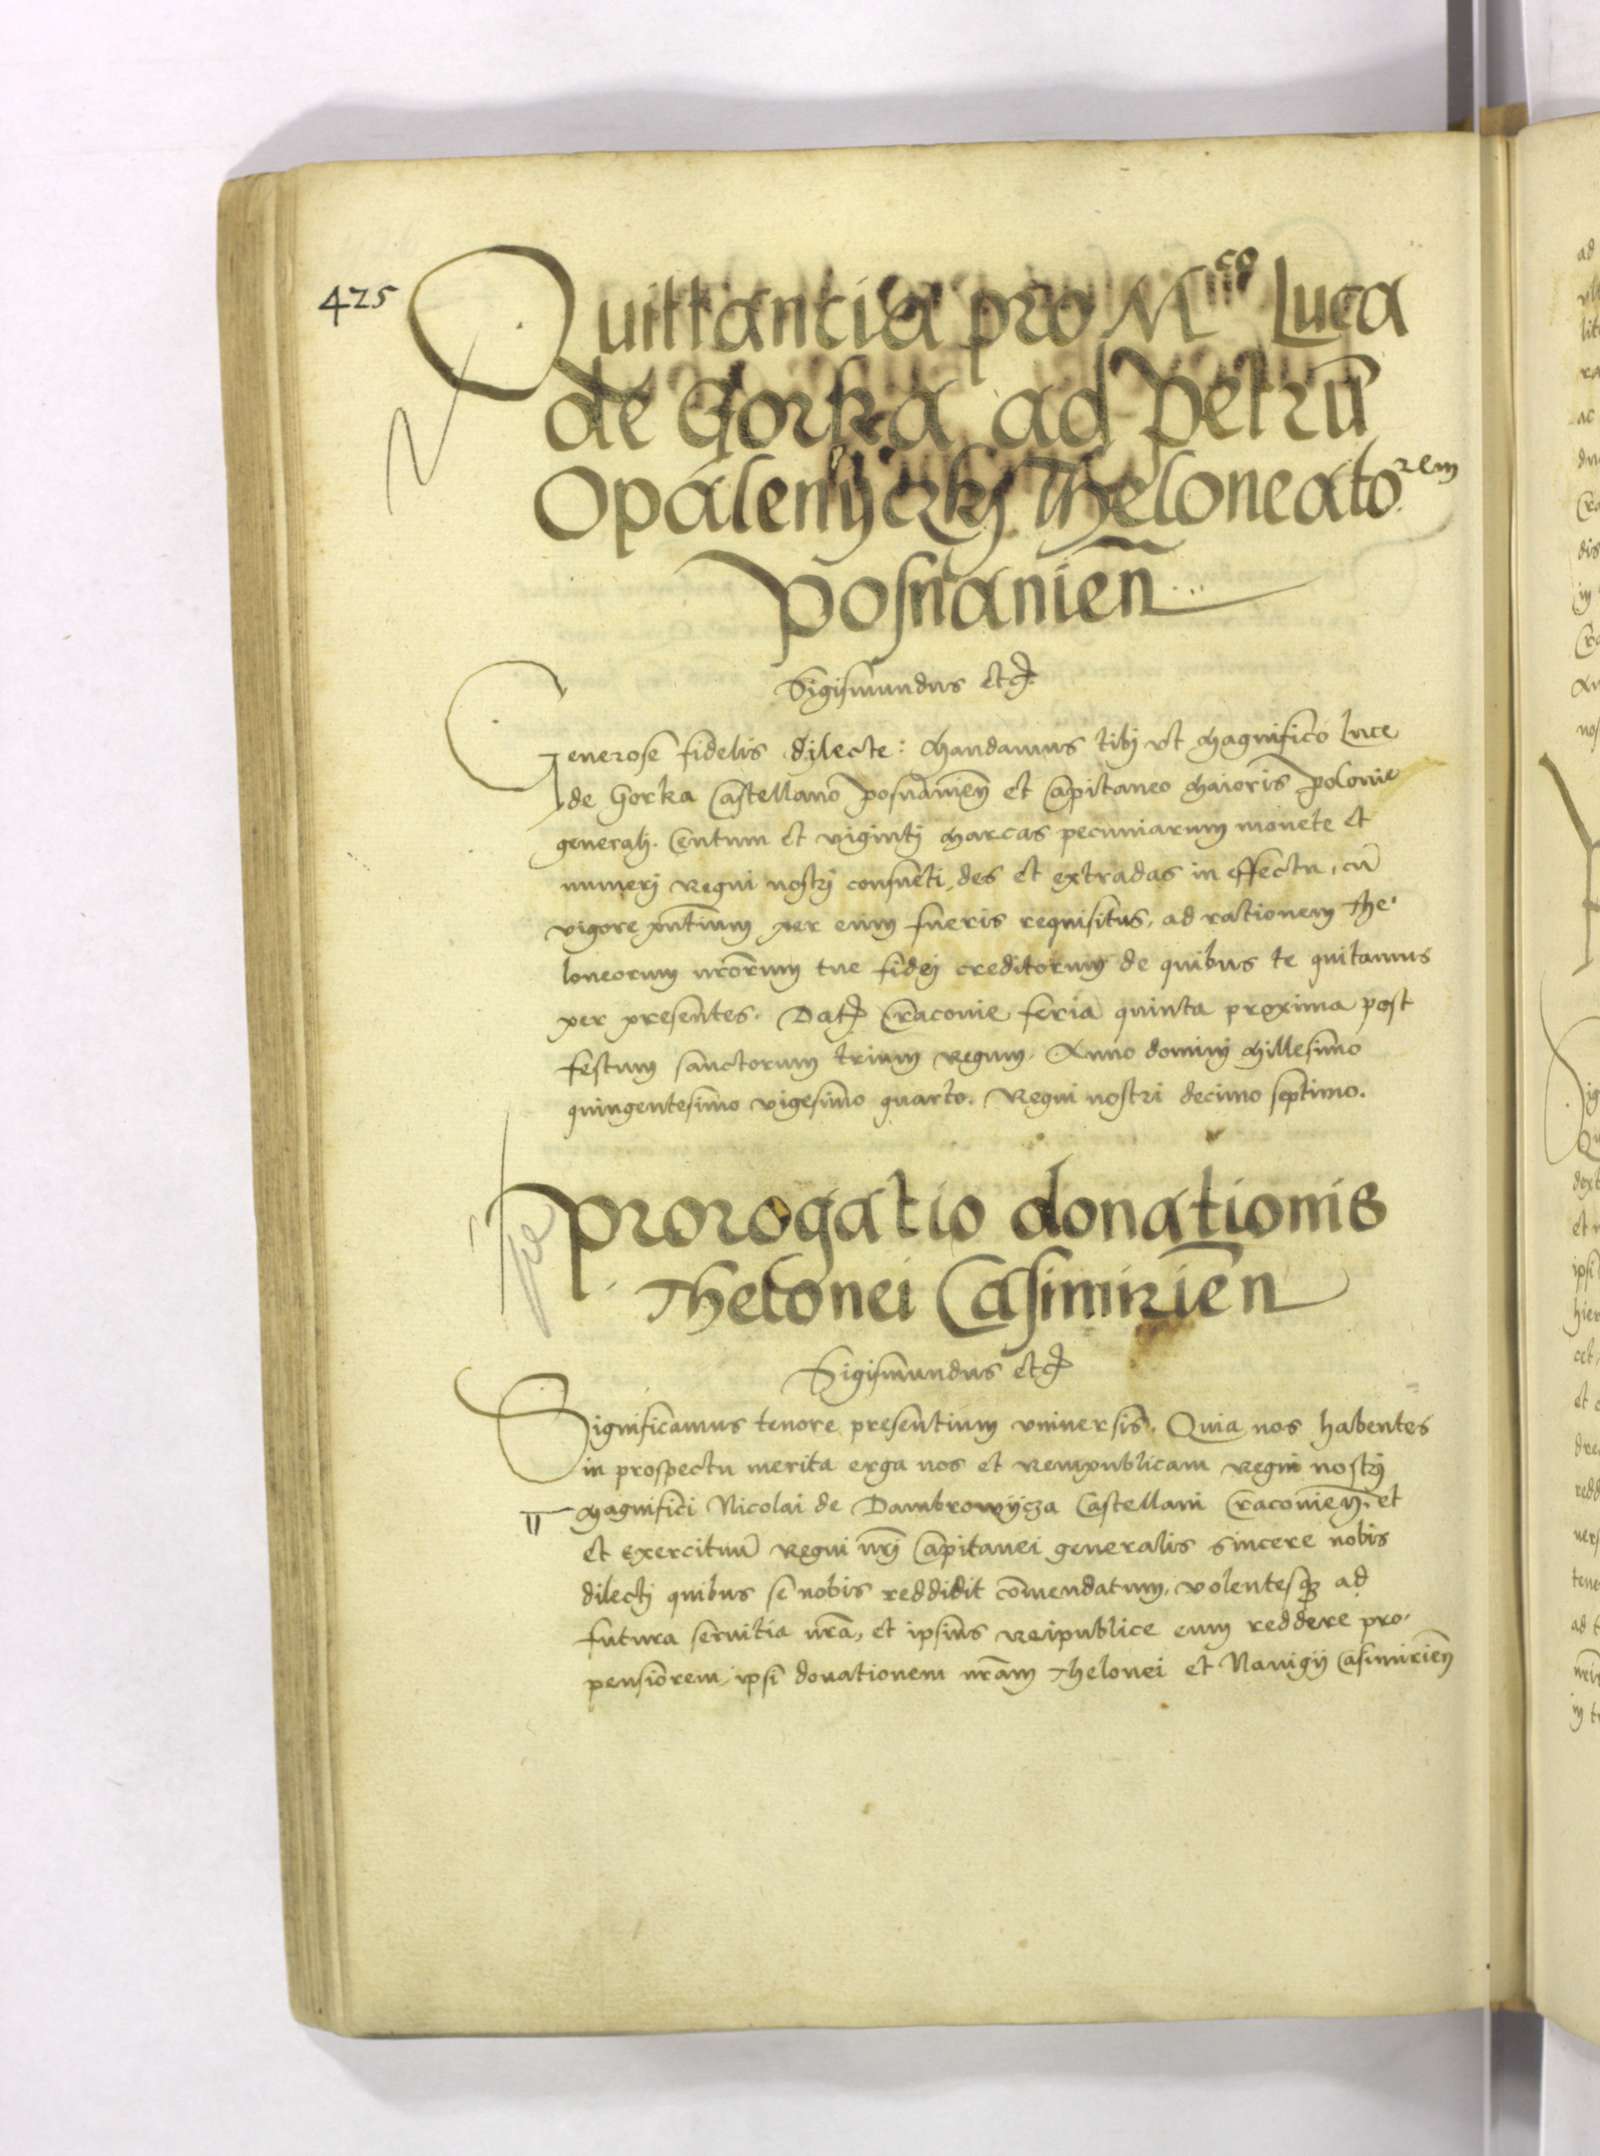 425
Quittancia pro Mco Luca
de Gorka ad Petrū
Opalenyczkj Theloneatorem
Posnanien̄
Sigismundus etc
Generose fidelis dilecte: Mandamus tibj vt Magnifico Luce
de Gorka Castellano Posnanien̄ et Capitaneo Maioris Polonie
generalj. Centum et vigintj Marcas pecuniarum monete et
numerj Regni nostrj consueti, des et extradas in effectu, cū
vigore pn̄tium per eum fueris requisitus, ad rationem The-
loneorum nr̄orum tue fidej creditorum de quibus te quitamus
per presentes. Dat Craconie feria quinta proxima post
festum sanctorum trium Regum. Anno dominj Millesimo
quingentesimo vigesimo quarto. Regni nostri decimo septimo.
Prorogatio donationis
Thelonei Casimirien̄
Sigismundus etc
Significamus tenore presentium vniuersis. Quia nos habentes
in prospectu merita erga nos et Rempublicam Regni nostrj
Magnifici Nicolai de Dambrowijcza Castellani Craconien̄, et
et Exercituū Regni nrj̄ Capitanei generalis sincere nobis
dilectj quibus se nobis reddidit com̄endatum, volentesqꝫ ad
futura seruitia nr̄a, et ipsius Reipublice eum reddere pro-
pensiorem, ipsi donationem nr̄am Thelonei et Nauigij Casimirien̄